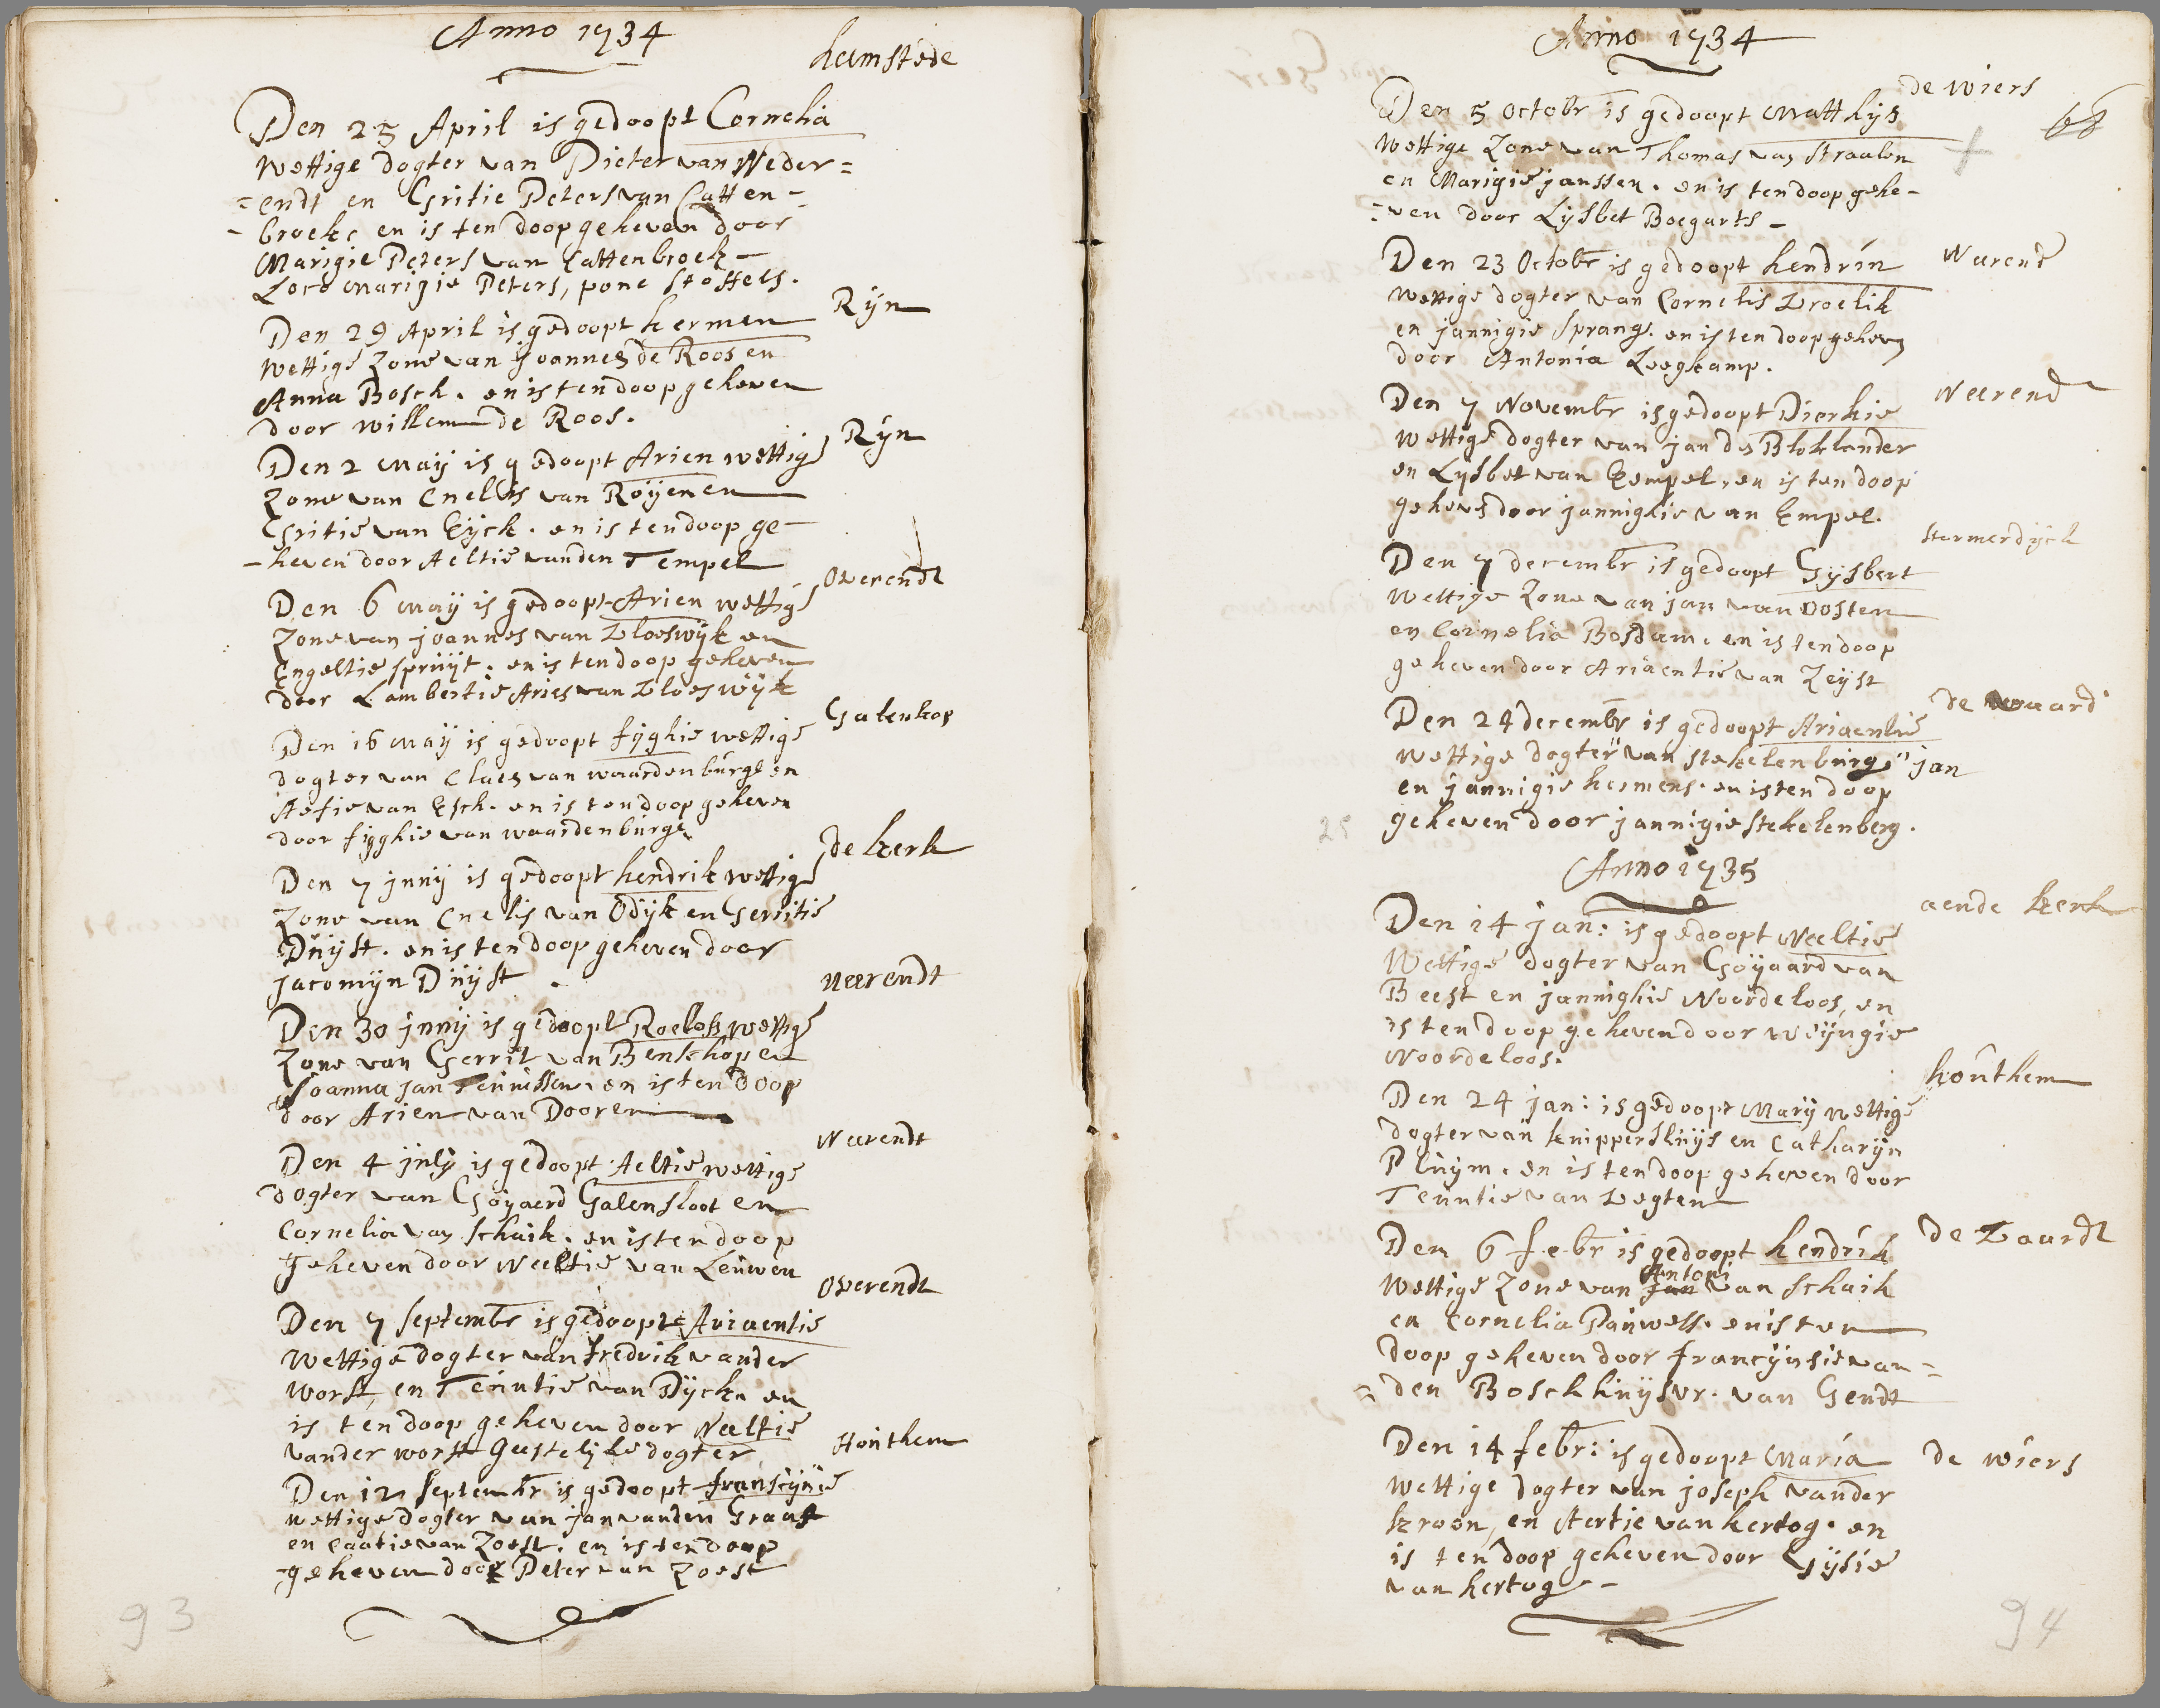 Anno 1734
heemstede
Den 25 April is gedoopt Cornelia
wettige dogter van Pieter van Neder=
=endt en Gritie Peters van Catten-
-broeke en is ten doop geheven door
Marigie Peters van Cattenbroek-
Loco marigie Peters, pone Stoffels.
Rijn
Den 29 April is gedoopt hermen
wettige Zone van Joannes de Roos en
Anna Bosch. en is ten doop geheven
door willem de Roos.
Rijn
Den 2 maij is gedoopt Arien wettige
Zone van Cnelis van Roijen en
Gritie van Eijck. en is ten doop ge-
-heven door Aeltie vanden Tempel
Overendt
Den 6 maij is gedoopt Arien wettige
Zone van joannes van Vloeswijk en
Engeltie spruijt. en is ten doop geheven
door Lambertie Aries van Vloeswijk
Galenkop
Den 16 maij is gedoopt fijghie wettige
dogter van Claes van waardenburge en
Aefie van Esch. en is ten doop geheven
door fijghie van waardenburge
de kerk
Den 7 junij is gedoopt hendrik wettige
Zone van Cnelis van Odijk en Gerritie
Duijst. en is ten doop geheven door
jacomijn Duijst.
neerendt
Den 30 junij is gedoopt Roelofs wettige
Zone van Gerrit van Benschop en
Joanna jan Teunissen. en is ten doop
door Arien van Dooren
Neerendt
Den 4 julij is gedoopt Aeltie wettige
dogter van Goijaerd Galensloot en
Cornelia van Schaik. en is ten doop
geheven door Neeltie van Leuwen
Overendt
Den 7 septembr is gedoopt Ariaentie
wettige dogter van fredrik vander
worst, en Teuntie van Dijck. en
is ten doop geheven door Neeltie
vander worst Geestelijke dogter
Houthem
Den 12 septembr is gedoopt franscijnie
wettige dogter van jan vanden Graaf
en Caatie van Zoest. en is ten doop
-geheven door Peter van Zoest
93
Anno 1734
de wiers
68
Den 5 octobr is gedoopt Matthijs
wettige Zone van Thomas van Straalen
en Marigie janssen. en is ten doop gehe-
=ven door Lijsbet Boegarts-
Neerend
Den 23 Octobr is gedoopt hendrin
wettige dogter van Cornelis Vroelik
en jannigie sprang. en is ten doop geheven
door Antonia Leegkamp.
Neerend
Den 7 Novembr is gedoopt Dierkie
wettige dogter van jan de Bloklander
en Lijsbet van Eempel, en is ten doop
geheven door jannighie van Empel.
stormerdijck
Den 7 decembr is gedoopt Gijsbert
wettige Zone van jan van Oosten
en Cornelia Bosdam. en is ten doop
geheven door Ariaentie van Zeijst
de waard
Den 24 decembr is gedoopt Ariaentie
wettige dogter" van stekelenburg "jan
en jannigie hermens. en is ten doop
25 geheven door jannigie stekelenberg.
Anno 1735
aende kerk
Den 14 jan: is gedoopt Neeltie
Wettige dogter van Goijaard van
Beest en jannighie Noordeloos, en
is ten doop geheven door Weijngie
Noordeloos.
houthem
Den 24 jan: is gedoopt marij wettige
dogter van knippersluijs en Catharijn
Pluijm. en is ten doop geheven door
Teuntie van Vegten
de Vaardt
Den 6 febr is gedoopt hendrik
wettige Zone van jan Antoni van Schaik
en Cornelia Pauwels. en is ten
doop geheven door francijnsie van=
=den Bosch huijsvr. van Gendt
de wiers
Den 14 febr: is gedoopt Maria
wettige dogter van joseph vander
kroon, en Aertie van hertog. en
is ten doop geheven door Gijsie
van hertog-
94